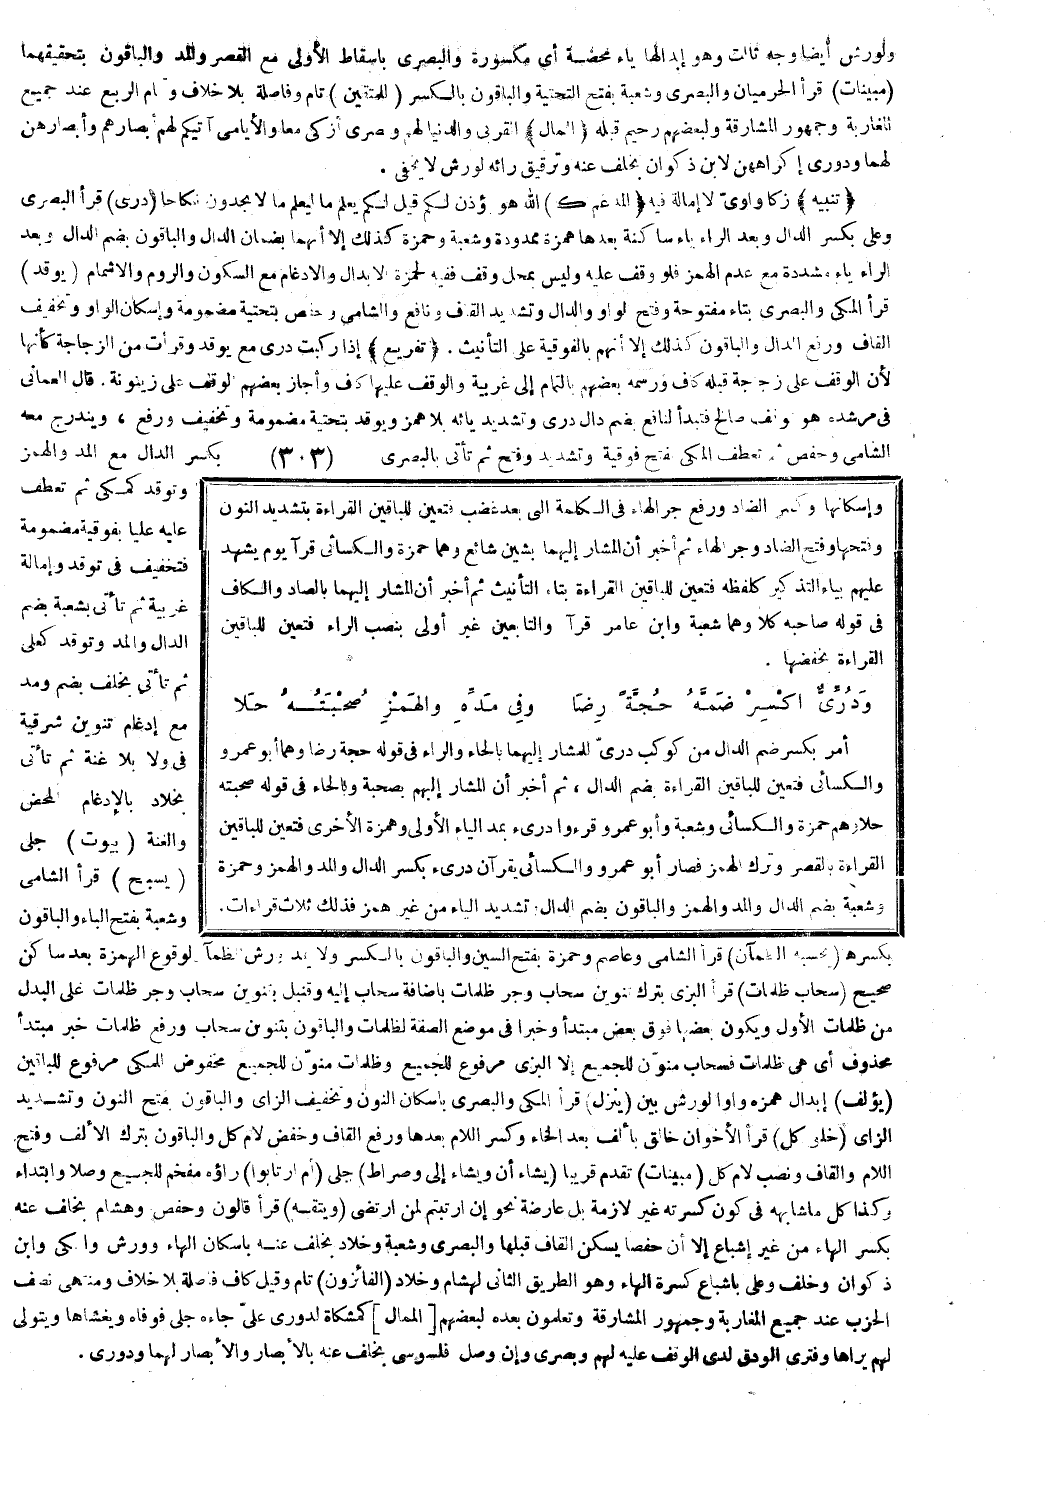 ولورش أيضا وجه ثالث وهو إبدالها ياء محضة أي مكسورة والبصرى باسقاط الأولى مع القصر والمد والباقون بتحقيقهما
(مبينات) قرأ الحرميان والبصرى وشعبة بفتح التحتية والباقون بالكسر (للمتقين) تام وفاصلة بلا خلاف وتمام الربع عند جميع
المغاربة وجمهور المشارقة ولبعضهم رحيم قبله ﴿الممال﴾ القربى والدنيا لهم وبصرى أزكى معا والأيامى آتيكم لهم أبصارهم وأبصارهن
لهما ودورى إكراههن لابن ذكوان بخلف عنه وترقيق رائه لورش لا يخفى .
﴿تنبيه﴾ زكا واوىّ لا إمالة فيه ﴿المدغم ك﴾ الله هو يؤذن لكم قيل لكم يعلم ما ليعلم ما لا يجدون نكاحا (درى) قرأ البصرى
وعلى بكسر الدال وبعد الراء ياء ساكنة بعدها همزة ممدودة وشعبة وحمزة كذلك إلا أنهما يضمان الدال والباقون بضم الدال وبعد
الراء ياء مشددة مع عدم الهمز فلو وقف عليه وليس بمحل وقف ففيه لحمزة الابدال والادغام مع السكون والروم والاشمام (يوقد)
قرأ المكى والبصرى بتاء مفتوحة وفتح الواو والدال وتشديد القاف ونافع والشامى وحفص بتحتية مضمومة وإسكان الواو وتخفيف
القاف ورفع الدال والباقون كذلك إلا أنهم بالفوقية على التأنيث . ﴿تفريع﴾ إذا ركبت درى مع يوقد وقرأت من الزجاجة كأنها
لأن الوقف على زجاجة قبله كاف ورسمه بعضهم بالتمام إلى غربية والوقف عليها كاف وأجاز بعضهم الوقف على زيتونة . قال العمانى
فى مرشده هو وقف صالح فتبدأ لنافع بضم دال درى وتشديد يائه بلا همز ويوقد بتحتية مضمومة وتخفيف ورفع ، ويندرج معه
الشامى وحفص ثم تعطف المكى بفتح فوقية وتشديد وفتح ثم تأتى بالبصرى (٣٠٣) بكسر الدال مع المد والهمز
وتوقد كمكى ثم تعطف
عليه عليا بفوقية مضمومة
فتخفيف فى توقد وإمالة
غربية ثم تأتى بشعبة بضم
الدال والمد وتوقد كعلى
ثم تأتى بخلف بضم ومد
مع إدغام تنوين شرقية
فى ولا بلا غنة ثم تأتى
بخلاد بالإدغام المحض
والغنة (بيوت) جلى
(يسبح) قرأ الشامى
وشعبة بفتح الباء والباقون
وإسكانها وكسر الضاد ورفع جر الهاء فى الكلمة التى بعد غضب فتعين للباقين القراءة بتشديد النون
وفتحها وفتح الضاد وجر الهاء ثم أخبر أن المشار إليهما بشين شائع وهما حمزة والكسائى قرآ يوم يشهد
عليهم بياء التذكير كلفظه فتعين للباقين القراءة بتاء التأنيث ثم أخبر أن المشار إليهما بالصاد والكاف
فى قوله صاحبه كلا وهما شعبة وابن عامر قرآ والتابعين غير أولى بنصب الراء فتعين للباقين
القراءة بخفضها .
وَدُرِّىٌّ اكْسِرْ ضَمَّهُ حُجَّةً رِضَا وفى مَدِّهِ والهَمْزِ صُحْبَتُهُ حَلَا
أمر بكسر ضم الدال من كوكب درىّ للمشار إليهما بالحاء والراء فى قوله حجة رضا وهما أبو عمرو
والكسائى فتعين للباقين القراءة بضم الدال ، ثم أخبر أن المشار إليهم بصحبة وبالحاء فى قوله صحبته
حلا وهم حمزة والكسائى وشعبة وأبو عمرو قرءوا درىء بمد الياء الأولى وهمزة الأخرى فتعين للباقين
القراءة بالقصر وترك الهمز فصار أبو عمرو والكسائى يقرآن درىء بكسر الدال والمد والهمز وحمزة
وشعبة بضم الدال والمد والهمز والباقون بضم الدال وتشديد الياء من غير همز فذلك ثلاث قراءات.
بكسرها (يحسبه الظمآن) قرأ الشامى وعاصم وحمزة بفتح السين والباقون بالكسر ولا يمد ورش الظمآن لوقوع الهمزة بعد ساكن
صحيح (سحاب ظلمات) قرأ البزى بترك تنوين سحاب وجر ظلمات باضافة سحاب إليه وقنبل بتنوين سحاب وجر ظلمات على البدل
من ظلمات الأول ويكون بعضها فوق بعض مبتدأ وخبرا فى موضع الصفة لظلمات والباقون بتنوين سحاب ورفع ظلمات خبر مبتدأ
محذوف أى هى ظلمات فسحاب منوّن للجميع إلا البزى مرفوع للجميع وظلمات منوّن للجميع مخفوض للمكى مرفوع للباقين
(يؤلف) إبدال همزه واوا لورش بين (ينزل) قرأ المكى والبصرى باسكان النون وتخفيف الزاى والباقون بفتح النون وتشديد
الزاى (خلق كل) قرأ الأخوان خالق بألف بعد الخاء وكسر اللام بعدها ورفع القاف وخفض لام كل والباقون بترك الألف وفتح
اللام والقاف ونصب لام كل (مبينات) تقدم قريبا (يشاء أن ويشاء إلى وصراط) جلى (أم ارتابوا) راؤه مفخم للجميع وصلا وابتداء
وكذا كل ما شابهه فى كون كسرته غير لازمة بل عارضة نحو إن ارتبتم لمن ارتضى (ويتقه) قرأ قالون وحفص وهشام بخلف عنه
بكسر الهاء من غير إشباع إلا أن حفصا يسكن القاف قبلها والبصرى وشعبة وخلاد بخلف عنه باسكان الهاء وورش والمكى وابن
ذكوان وخلف وعلى باشباع كسرة الهاء وهو الطريق الثانى لهشام وخلاد (الفائزون) تام وقيل كاف فاصلة بلا خلاف ومنتهى نصف
الحزب عند جميع المغاربة وجمهور المشارقة وتعلمون بعده لبعضهم [الممال] كمشكاة لدورى علىّ جاءه جلى فوفاه ويغشاها ويتولى
لهم يراها وفترى الودق لدى الوقف عليه لهم وبصرى وإن وصل فلسوسى بخلف عنه بالأبصار والأبصار لهما ودورى .